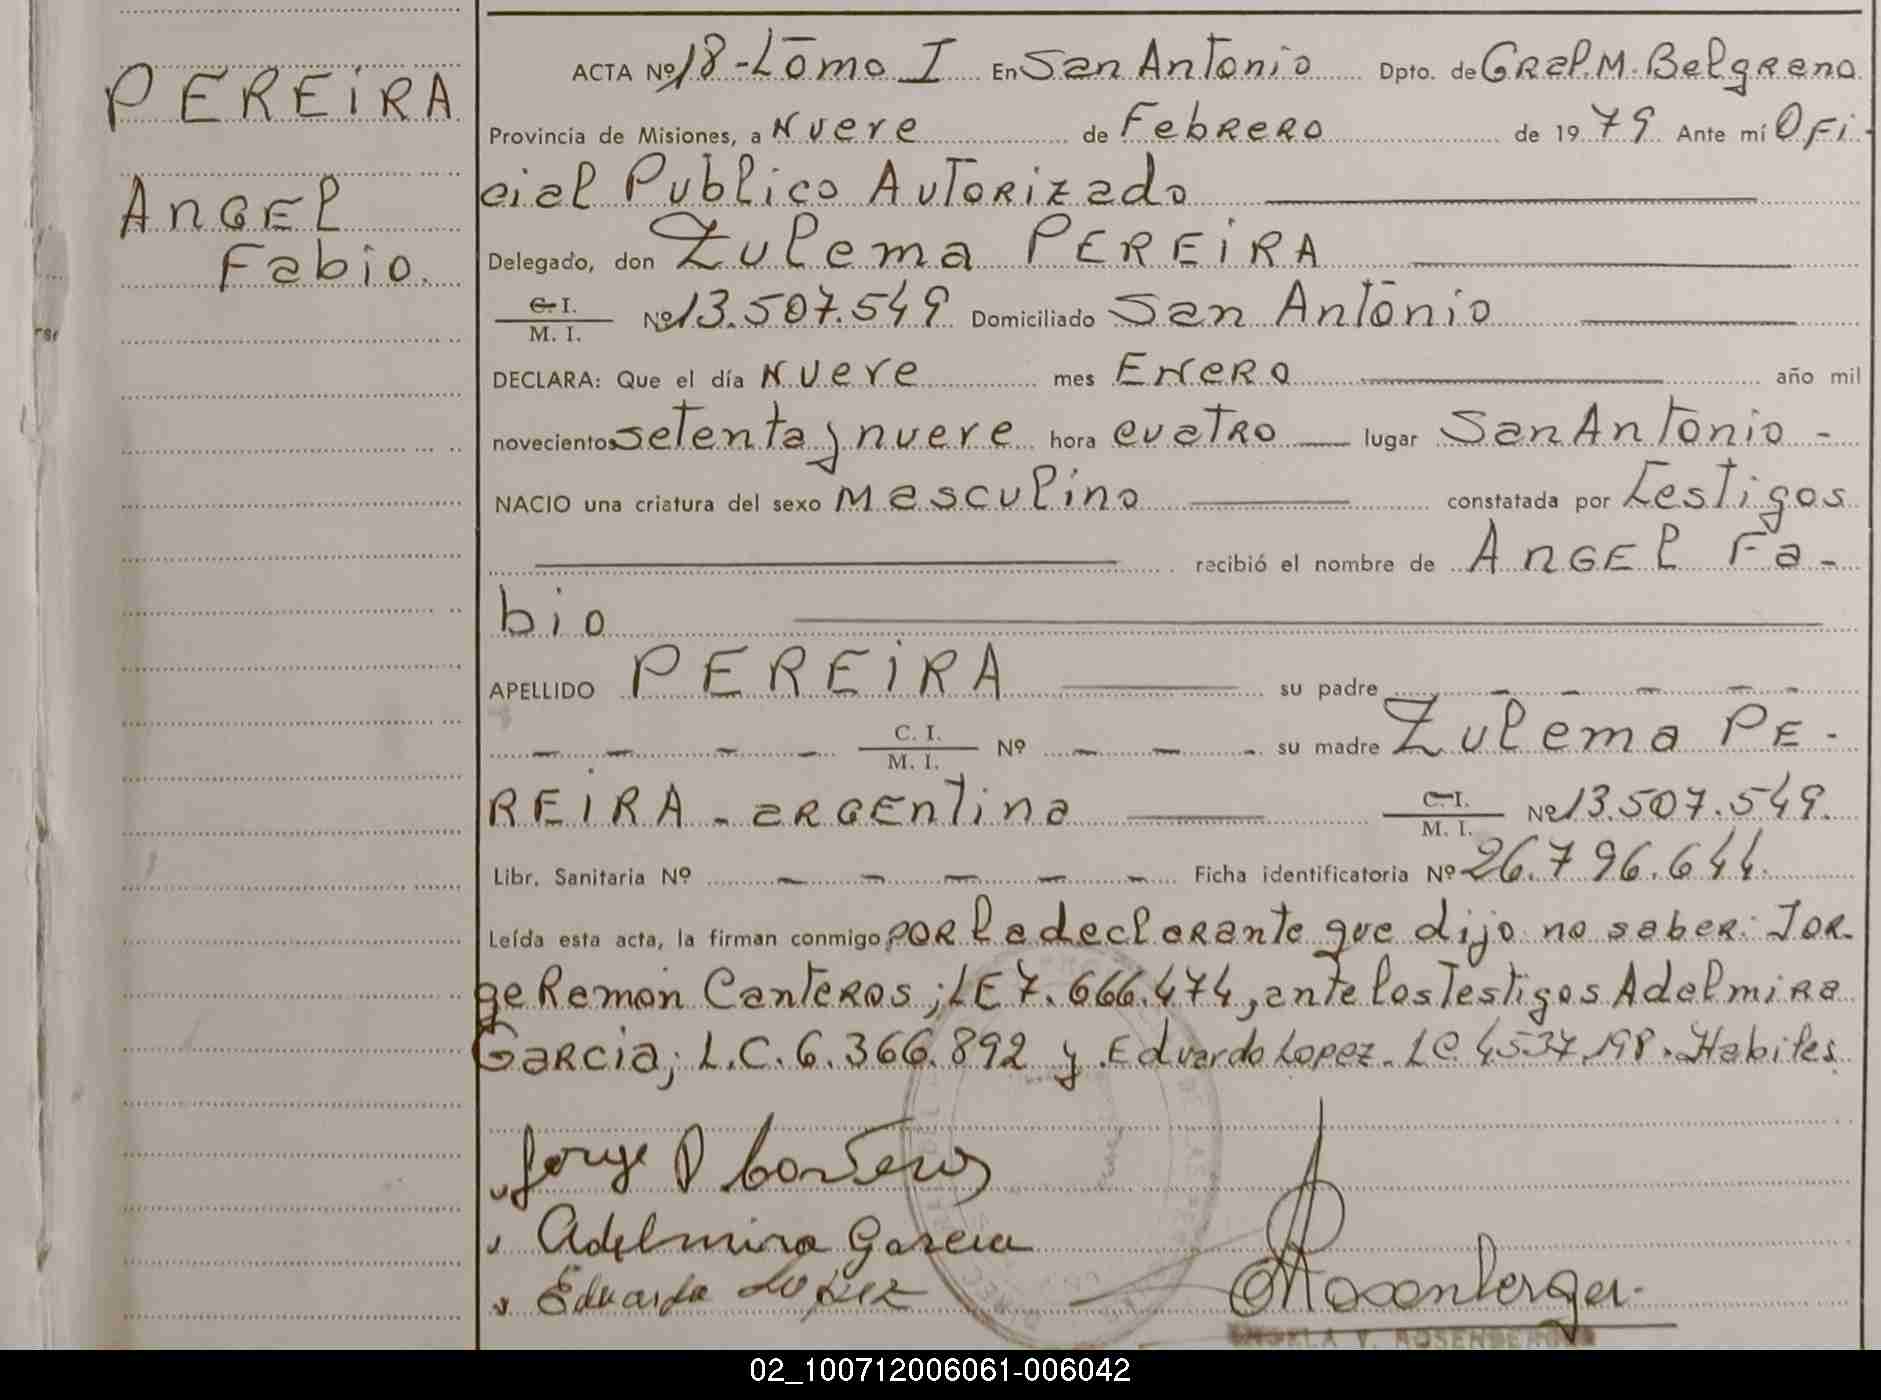 PEREIRA
ANGEL
Fabio.
ACTA Nº 18-Tomo I En San Antonio Dpto. de GRal. M. Belgrano
Provincia de Misiones, a Nueve de Febrero de 1979 Ante mí Ofi-
cial Publico Autorizado
Delegado, don Zulema PEREIRA
C. I.
M. I. Nº 13.507.549 Domiciliado San Antonio
DECLARA: Que el día Nueve mes Enero año mil
novecientos setenta y nueve hora cuatro lugar San Antonio -
NACIO una criatura del sexo Masculino constatada por Testigos
recibió el nombre de ANGEL Fa-
bio
APELLIDO PEREIRA su padre - - - - -
- - - - C. I.
M. I. Nº - - - su madre Zulema PE-
REIRA - argentina C. I.
M. I. Nº 13.507.549.
Libr. Sanitaria Nº - - - - - Ficha identificatoria Nº 26.796.644.
Leída esta acta, la firman conmigo por la declarante que dijo no saber: Jor-
ge Ramón Canteros; LE 7.666.474, ante los Testigos Adelmira
Garcia; L.C. 6.366.892 y Eduardo Lopez. LE 4537.198. Habiles
Jorge R Canteros
Adelmira Garcia
Eduardo Lopez
Rosenberger
ANGELA V. ROSENBERGER
02_100712006061-006042